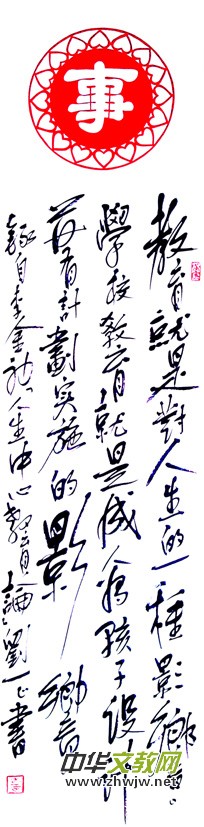 事
教育就是對人生的一種影響。
學校教育就是成人為孩子設計
并有計劃實施的影響
錄自李金龍人生中心教育論 劉一正書
中华文教网
www.zhwjw.net